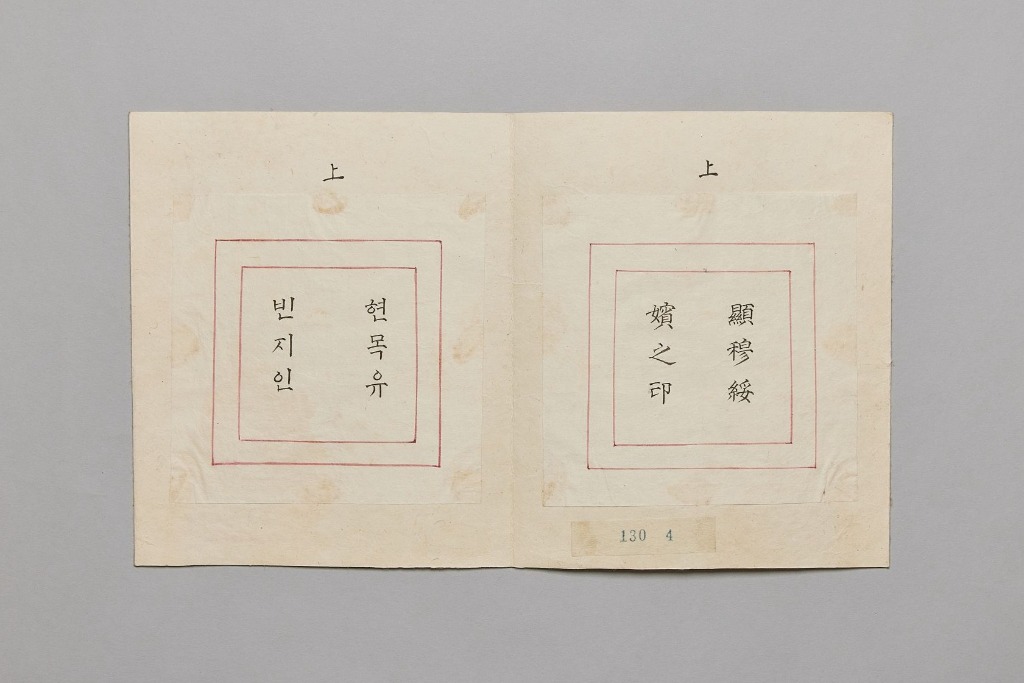 上
顯穆綏
嬪之印
130 4
上
현목유
빈지인